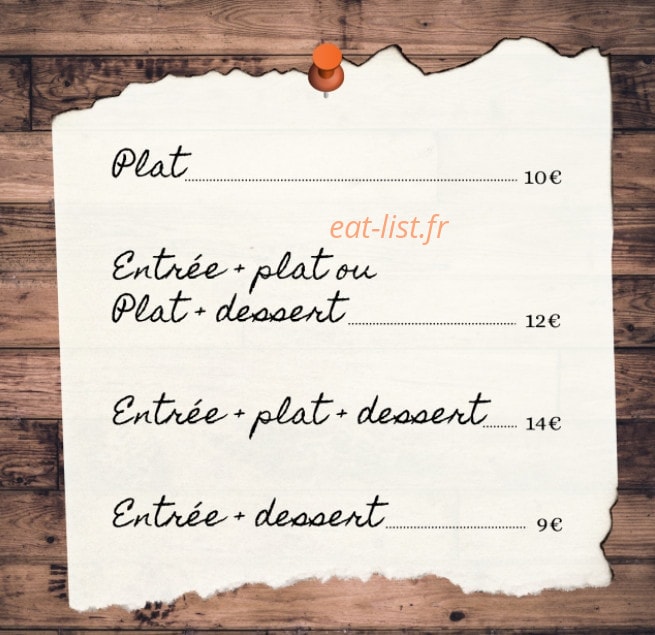 Plat 10€
eat-list.fr
Entrée + plat ou
Plat + dessert 12€
Entrée + plat + dessert 14€
Entrée + dessert 9€